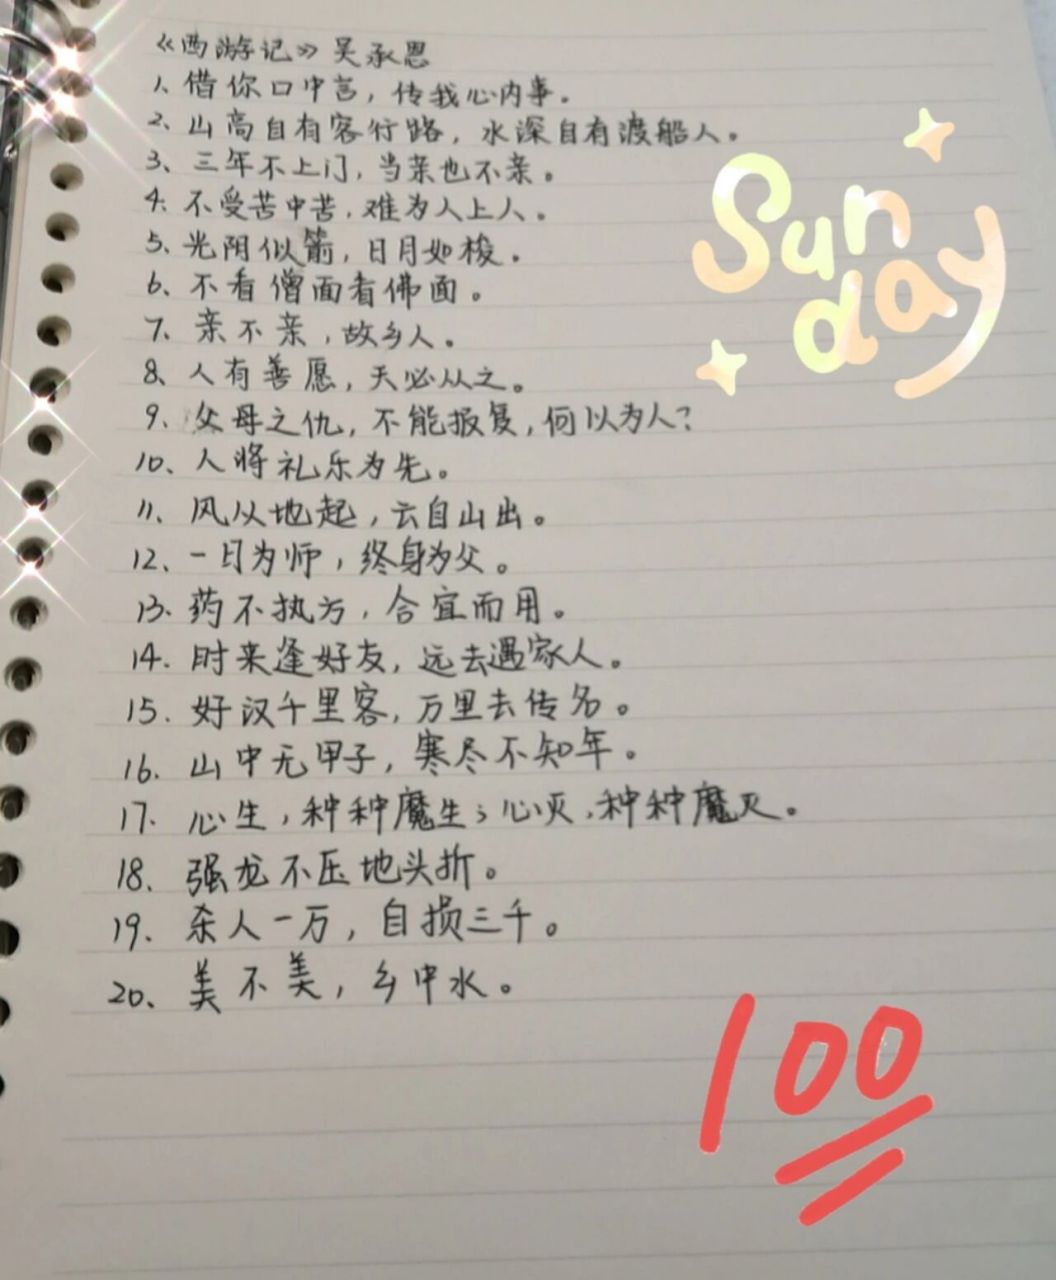 《西游记》吴承恩
1、借你口中言，传我心内事。
2、山高自有客行路，水深自有渡船人。
3、三年不上门，当亲也不亲。
4、不受苦中苦，难为人上人。
5、光阴似箭，日月如梭。
6、不看僧面看佛面。
7、亲不亲，故乡人。
8、人有善愿，天必从之。
9、父母之仇，不能报复，何以为人？
10、人将礼乐为先。
11、风从地起，云自山出。
12、一日为师，终身为父。
13、药不执方，合宜而用。
14、时来逢好友，远去遇家人。
15、好汉千里客，万里去传名。
16、山中无甲子，寒尽不知年。
17、心生，种种魔生；心灭，种种魔灭。
18、强龙不压地头折。
19、杀人一万，自损三千。
20、美不美，乡中水。
Sun
day
100